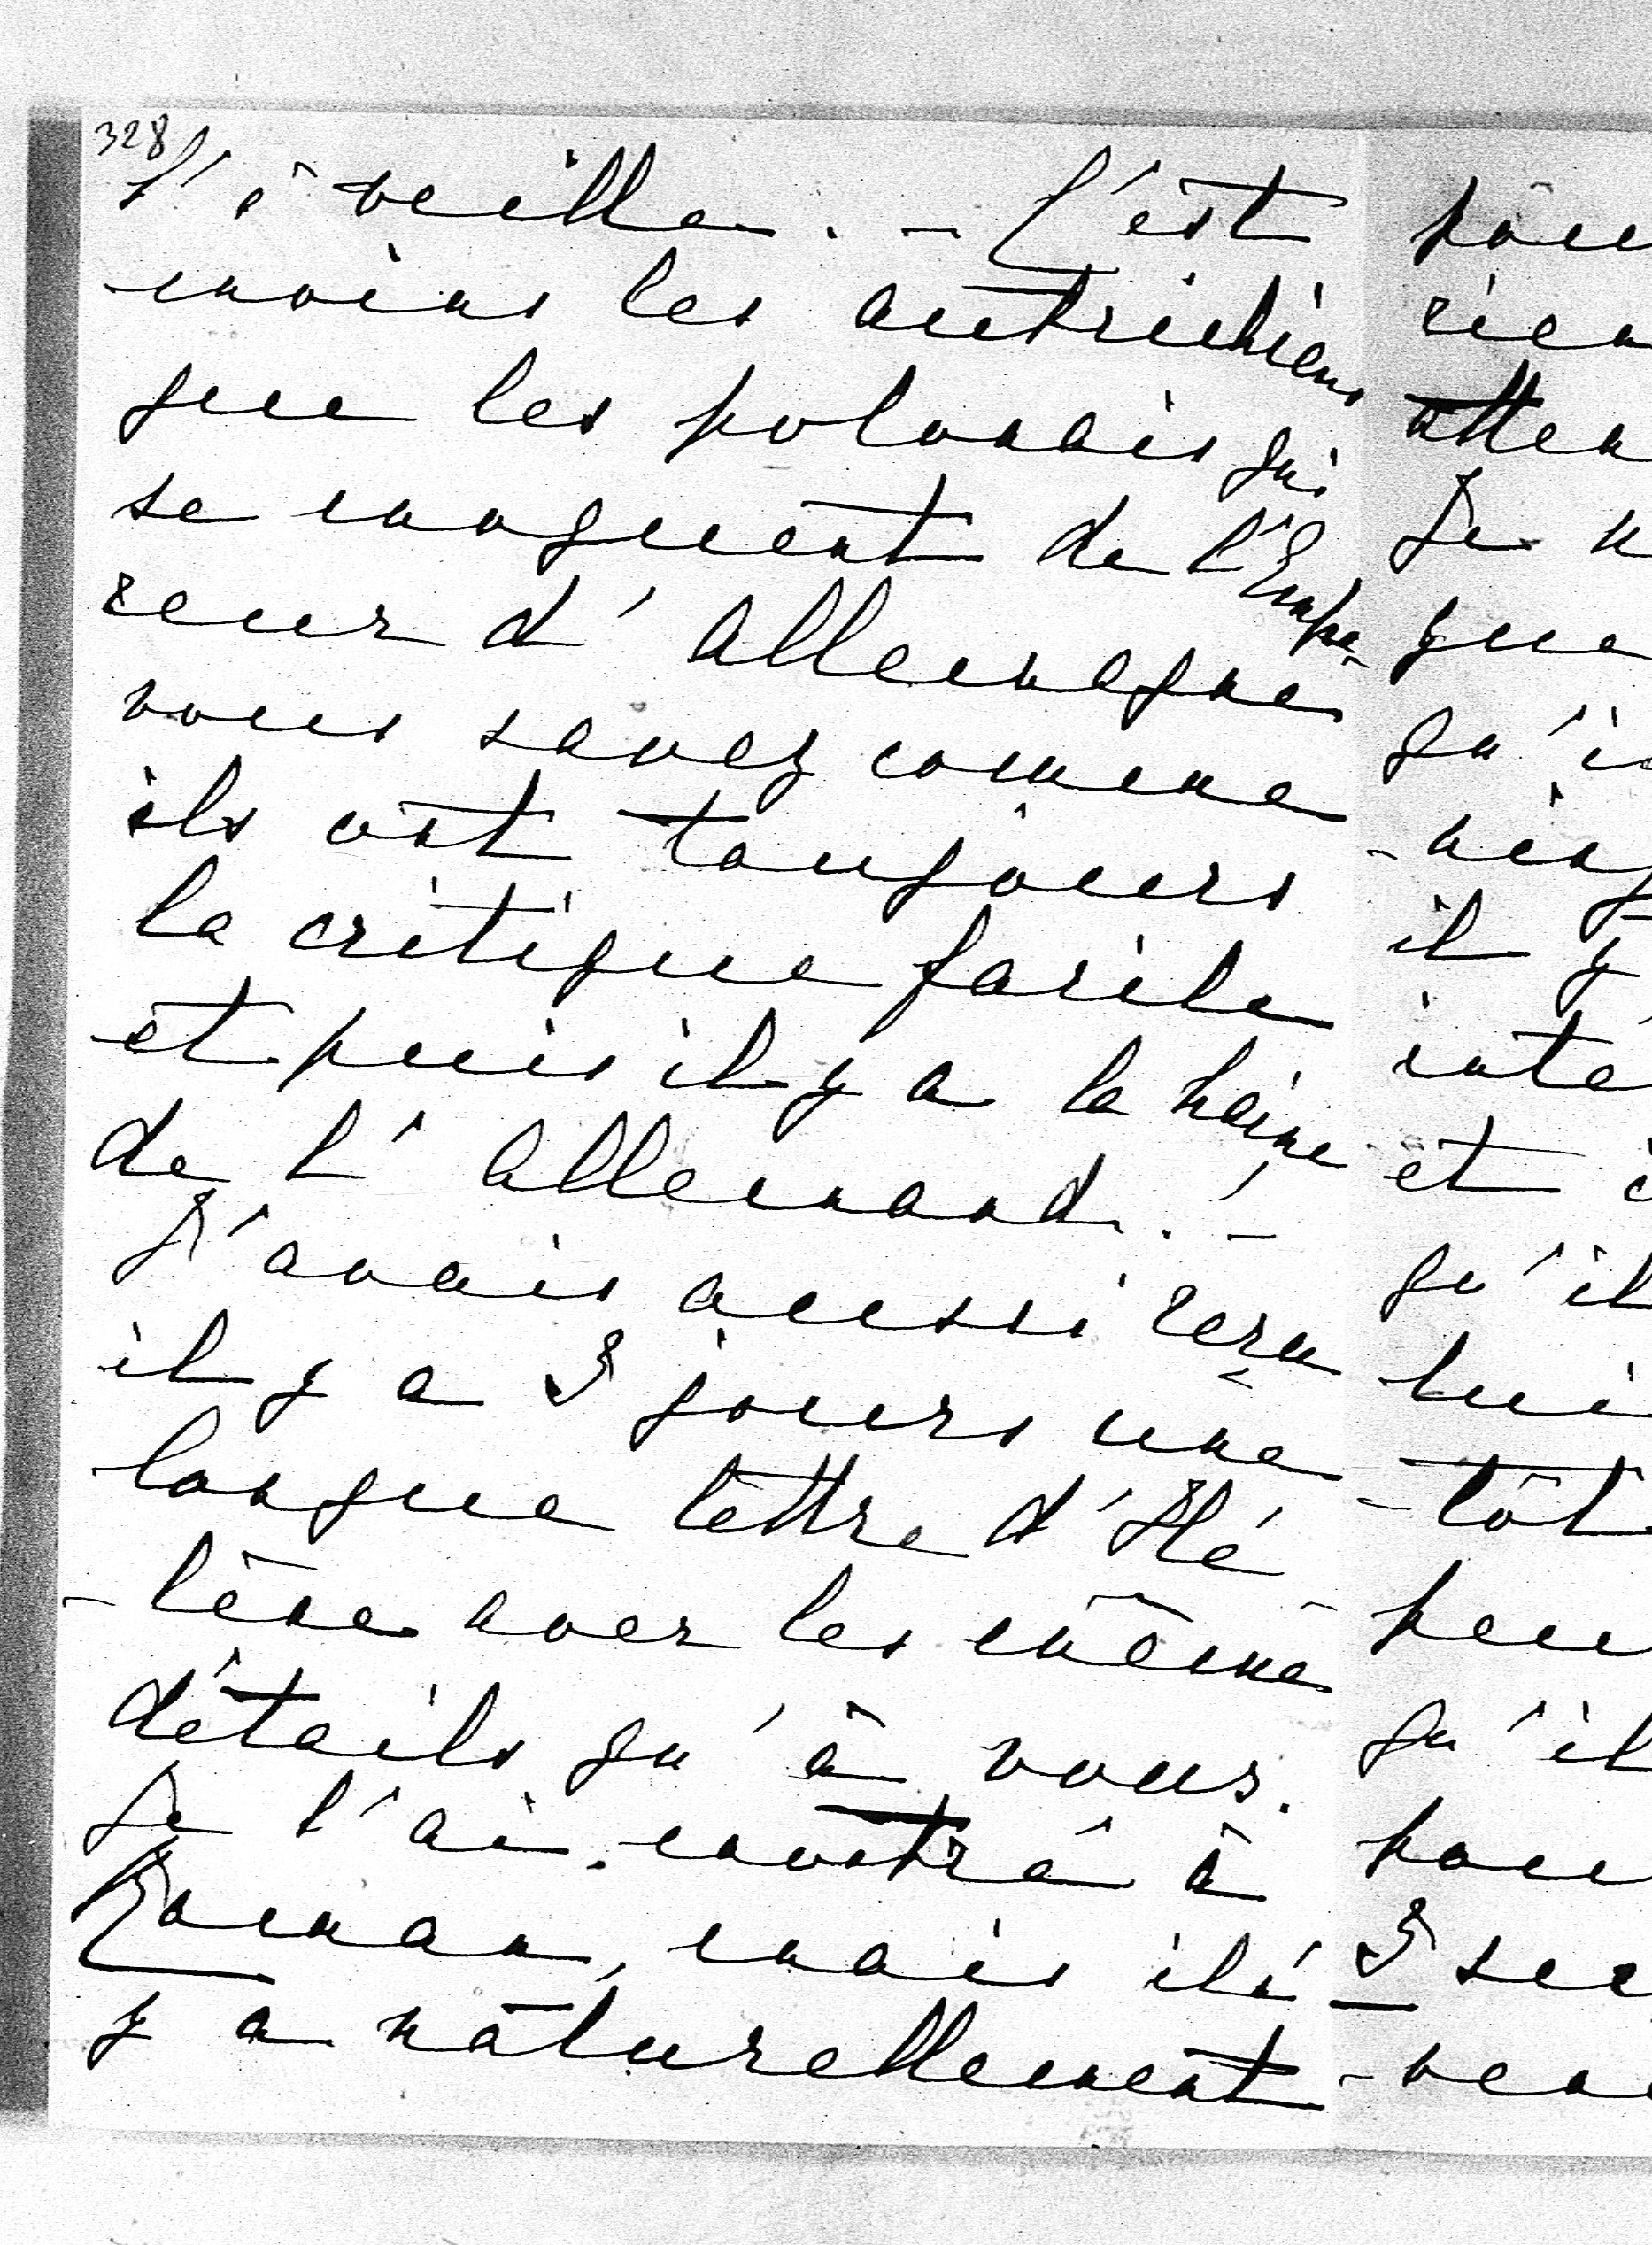 328
s'éveille. - C'est
moins les autrichiens
que les polonais qui
se moquent de l'Empe-
reur d'Allemagne
vous savez comme
ils ont toujours
la critique facile
et puis il y a la haine
de l'Allemand. -
J'avais aussi reçu
il y a 3 jours une
longue lettre d'Hé
-lène avec les même
détails qu'à vous.
Je l'ai montré à
Roman, mais il s'
y a naturellement
rien
Je n
que
qu'i
il y
inté
et
qu'il
lui
-tôt
qu'il
3